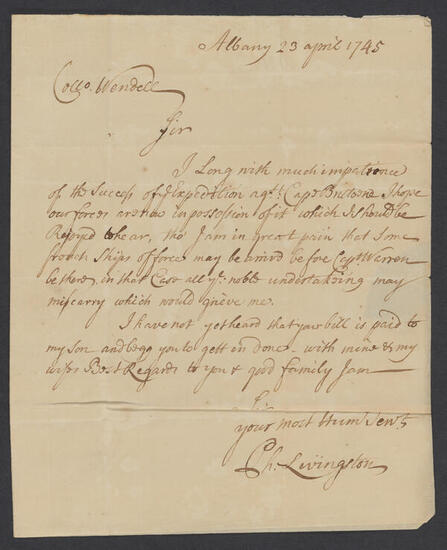 Albany 23 april 1745
Collo. Wendell
Sir
I Long with much impatience
of the Success of ye Expedition agt. Cape Brittoen I hope
our forces are now in possession of it which I should be
Rejoyced to hear, tho I am in great pain that Some
french Ships of force may be arived before Capt Warren
be there, in that Case all ye. noble undertaking may
miscarry which would grieve me.
I have not yet heard that your bill is paid to
my son and begg you to gett it done - with mine & my
wifes Best Regards to you & good family I am
Sir
your most Huml Servt
Ph. Livingston